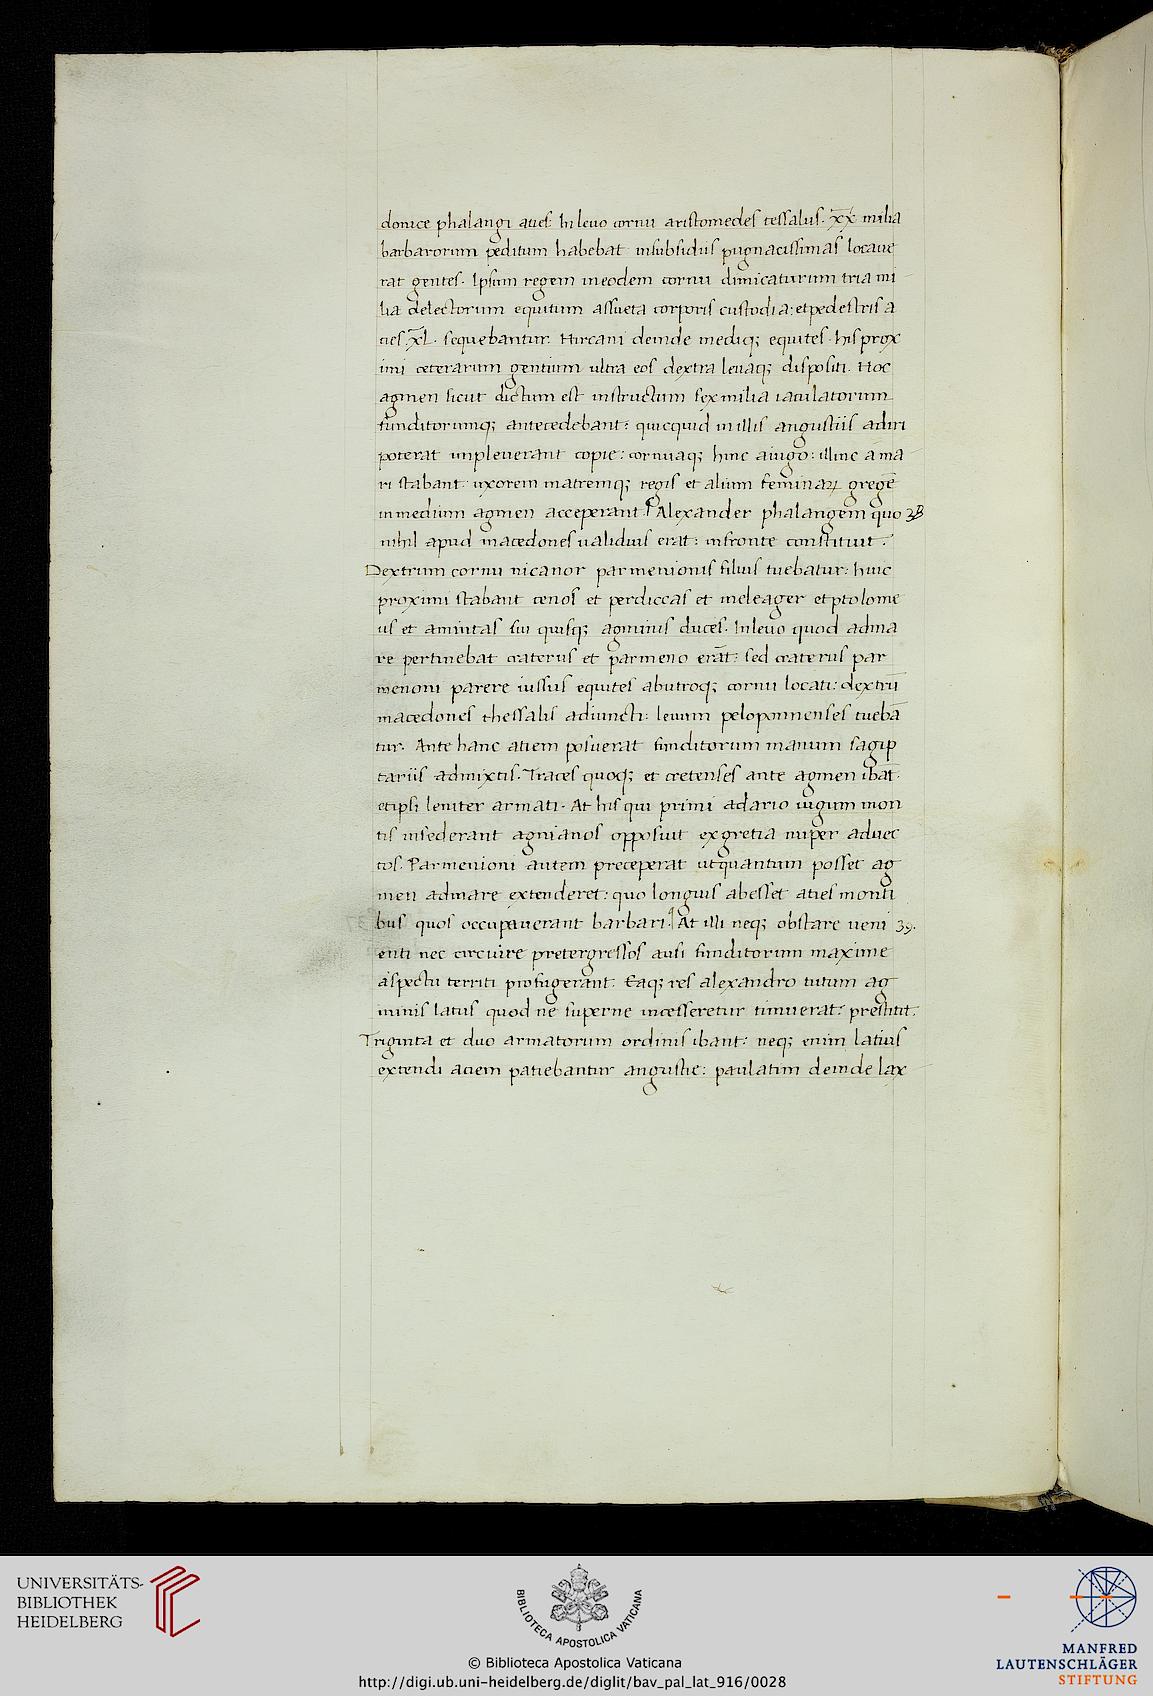 donice phalangi aties: In leuo cornu aristomedes tessalus. XX milia
barbarorum peditum habebat insubsidiis pugnacissimas locaue
rat gentes. Ipsum regem ineodem cornu dimicaturum tria mi
lia delectorum equitum assueta corporis custodia: etpedestris a
cies XL. sequebantur. Hircani deinde mediq; equites. his prox
imi ceterarum gentium ultra eos dextra leuaq; dispositi. Hoc
agmen sicut dictum est instructum sex milia iaculatorum
funditorumq; antecedebant: quicquid inillis angustiis adiri
poterat impleuerant copie: cornuaq; hinc aiugo: illinc ama
ri stabant: uxorem matremq; regis et alium feminaꝝ gregē
inmedium agmen acceperant. Alexander phalangem quo 38
nihil apud macedones ualidius erat: infronte constituit.
Dextrum cornu nicanor parmenionis filius tuebatur: huic
proximi stabant cenos et perdiccas et meleager etptolome
us et amintas sui quisq; agminis duces. Inleuo quod adma
re pertinebat craterus et parmeno erāt: sed craterus par
menoni parere iussus equites abutroq; cornu locati: dextrū
macedones thessalis adiuncti: leuum peloponnenses tuebā
tur. Ante hanc atiem posuerat funditorum manum sagip
tariis admixtis. Traces quoq; et cretenses ante agmen ibāt.
etipsi leuiter armati. At his qui primi adario iugum mon
tis insederant agnianos opposuit exgretia nuper aduec
tos. Parmenioni autem preceperat utquantum posset ag
men admare extenderet: quo longius abesset aties monti
bus quos occupauerant barbari. At illi neq; obstare ueni 39.
enti nec circuire pretergressos ausi funditorum maxime
aspectu territi profugerant. Eaq; res alexandro tutum ag
minis latus quod ne superne incesseretur timuerat: prestitit.
Triginta et duo armatorum ordinis ibant: neq; enim latius
extendi aciem patiebantur angustie: paulatim deinde lax
UNIVERSITÄTS-
BIBLIOTHEK
HEIDELBERG
BIBLIOTECA APOSTOLICA VATICANA
MANFRED
LAUTENSCHLÄGER
STIFTUNG
© Biblioteca Apostolica Vaticana
http://digi.ub.uni-heidelberg.de/diglit/bav_pal_lat_916/0028